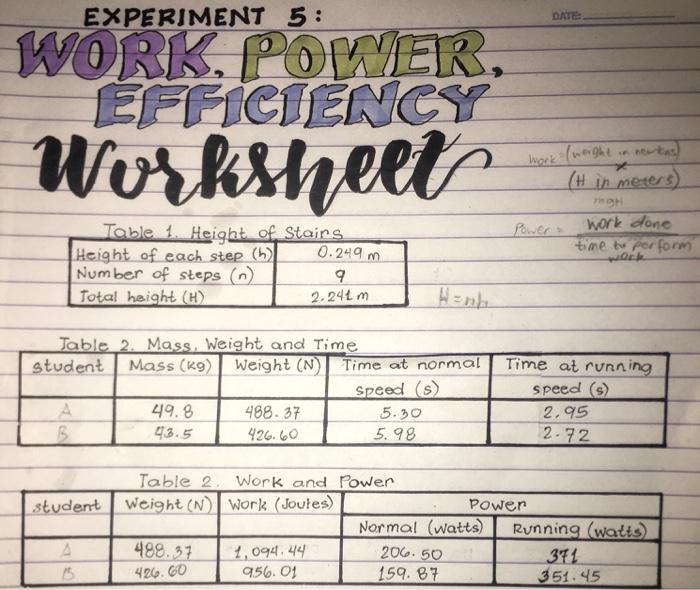 EXPERIMENT 5:
DATE:
WORK, POWER,
EFFICIENCY
Worksheet
Work = (weight in newtons)
x
(H in meters)
mgH
Power = work done
time to perform
work
Table 1. Height of Stairs
Height of each step (h) 0.249 m
Number of steps (n) 9
Total height (H) 2.241 m
H = nh
Table 2. Mass, Weight and Time
Student Mass (kg) Weight (N) Time at normal speed (s) Time at running speed (s)
A 49.8 488.37 5.30 2.95
B 43.5 426.60 5.98 2.72
Table 2. Work and Power
Student Weight (N) Work (Joules) Power
Normal (watts) Running (watts)
A 488.37 1,094.44 206.50 371
B 426.60 956.01 159.87 351.45